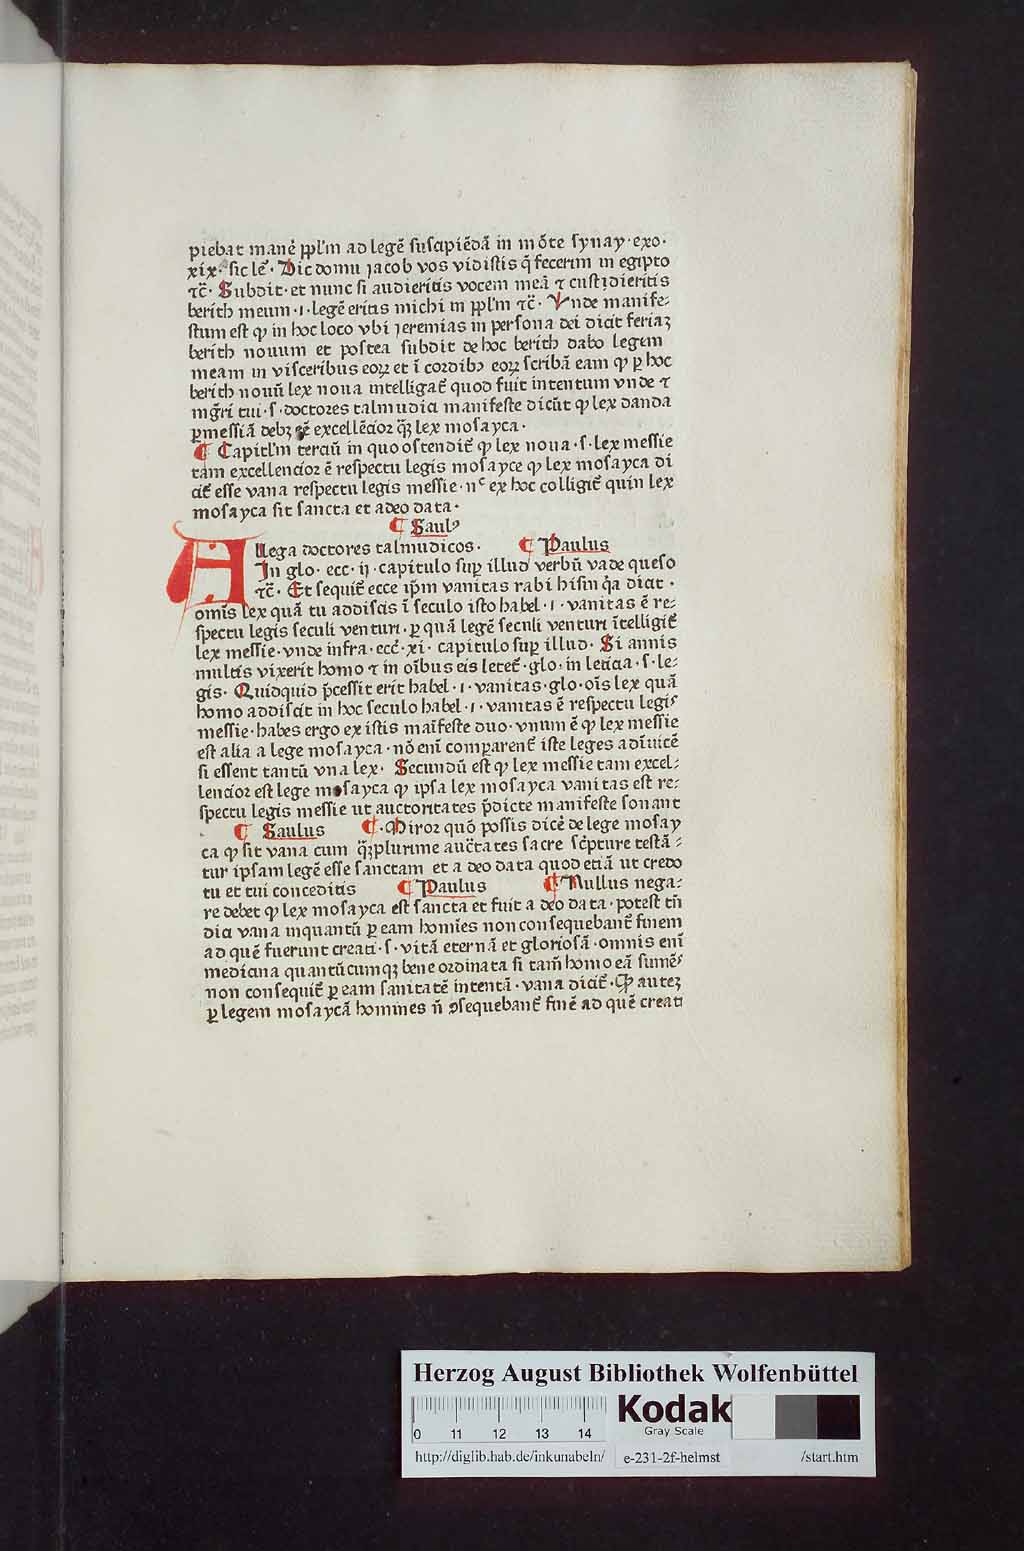 piebat manẽ ꝓpl'm ad legẽ suscipiẽdã in mõte synay · exo ·
xix · sic leͨ · Dic domui jacob vos vidistis q̃ fecerim in egipto
⁊c̃ · Subdit · et nunc si audieritis vocem meã ⁊ custodieritis
berith meum · i · legẽ eritis michi in ꝓpl'm ⁊c̃ · Vnde manife⸗
stum est ꝙ in hoc loco vbi jeremias in persona dei dicit feriaꝫ
berith nouum et postea subdit de hoc berith dabo legem
meam in visceribus eoꝝ et ĩ cordibꝰ eoꝝ scribã eam ꝙ ꝑ hoc
berith nouũ lex noua intelligat᷑ quod fuit intentum vnde ⁊
mgr̃i tui · s · doctores talmudici manifeste dicũt ꝙ lex danda
ꝑ messiã debꝫ eẽ excellẽcior q̃ꝫ lex mosayca ·
¶ Capitl'm terciũ in quo ostendit᷑ ꝙ lex noua · s · lex messie
tam excellencior ẽ respectu legis mosayce ꝙ lex mosayca di
cit᷑ esse vana respectu legis messie · nͨ ex hoc colligit᷑ quin lex
mosayca sit sancta et a deo data ·
¶ Saulꝰ
Allega doctores talmudicos · ¶ Paulus
In glo · ecc · ij · capitulo suꝑ illud verbũ vade queso
⁊c̃ · Et sequit᷑ ecce ip̃m vanitas rabi hisin q̃a dicit ·
omĩs lex quã tu addiscis ĩ seculo isto habel · i · vanitas ẽ re⸗
spectu legis seculi venturi · ꝑ quã legẽ seculi venturi ĩtelligit᷑
lex messie · vnde infra · ecc̃ · xi · capitulo suꝑ illud · Si annis
multis vixerit homo ⁊ in oĩbus eis letet᷑ · glo · in leticia · s · le⸗
gis · Quidquid p̃cessit erit habel · i · vanitas · glo · oĩs lex quã
homo addiscit in hoc seculo habel · i · vanitas ẽ respectu legis
messie · habes ergo ex istis maĩfeste duo · vnum ẽ ꝙ lex messie
est alia a lege mosayca · nõ enĩ comparent᷑ iste leges adĩuicẽ
si essent tantũ vna lex · Secundũ est ꝙ lex messie tam excel⸗
lencior est lege mosayca ꝙ ipsa lex mosayca vanitas est re⸗
spectu legis messie ut auctoritates p̃dicte manifeste sonant
¶ Saulus ¶ · Miror quõ possis dicẽ de lege mosay
ca ꝙ sit vana cum q̃ꝫplurime auc̃tates sacre sc̃pture testã⸗
tur ipsam legẽ esse sanctam et a deo data quod etiã ut credo
tu et tui conceditis ¶ Paulus ¶ Nullus nega⸗
re debet ꝙ lex mosayca est sancta et fuit a deo data · potest tñ
dici vana inquantũ ꝑ eam homĩes non consequebant᷑ finem
ad quẽ fuerunt creati · s · vitã eternã et gloriosã · omnis enĩ
medicina quantũcumqꝫ bene ordinata si tam̃ homo eã sumẽs
non consequit᷑ ꝑ eam sanitatẽ intentã · vana dicit᷑ · Ꝙ auteꝫ
ꝑ legem mosaycã homines ñ ꝯsequebant᷑ finẽ ad quẽ creati
Herzog August Bibliothek Wolfenbüttel
0 11 12 13 14
Kodak
Gray Scale
http://diglib.hab.de/inkunabeln/ e-231-2f-helmst /start.htm